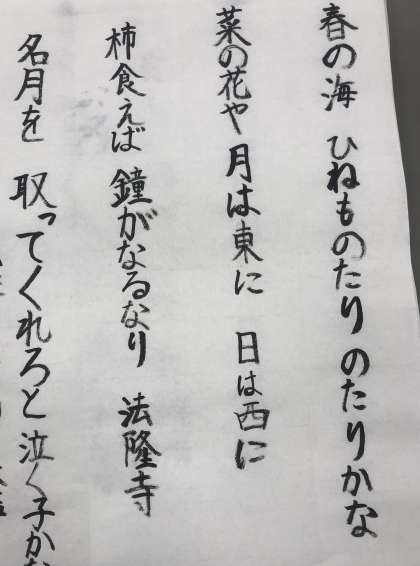 春の海 ひねものたり のたりかな
菜の花や 月は東に 日は西に
柿食えば 鐘がなるなり 法隆寺
名月を 取ってくれろと 泣く子かな